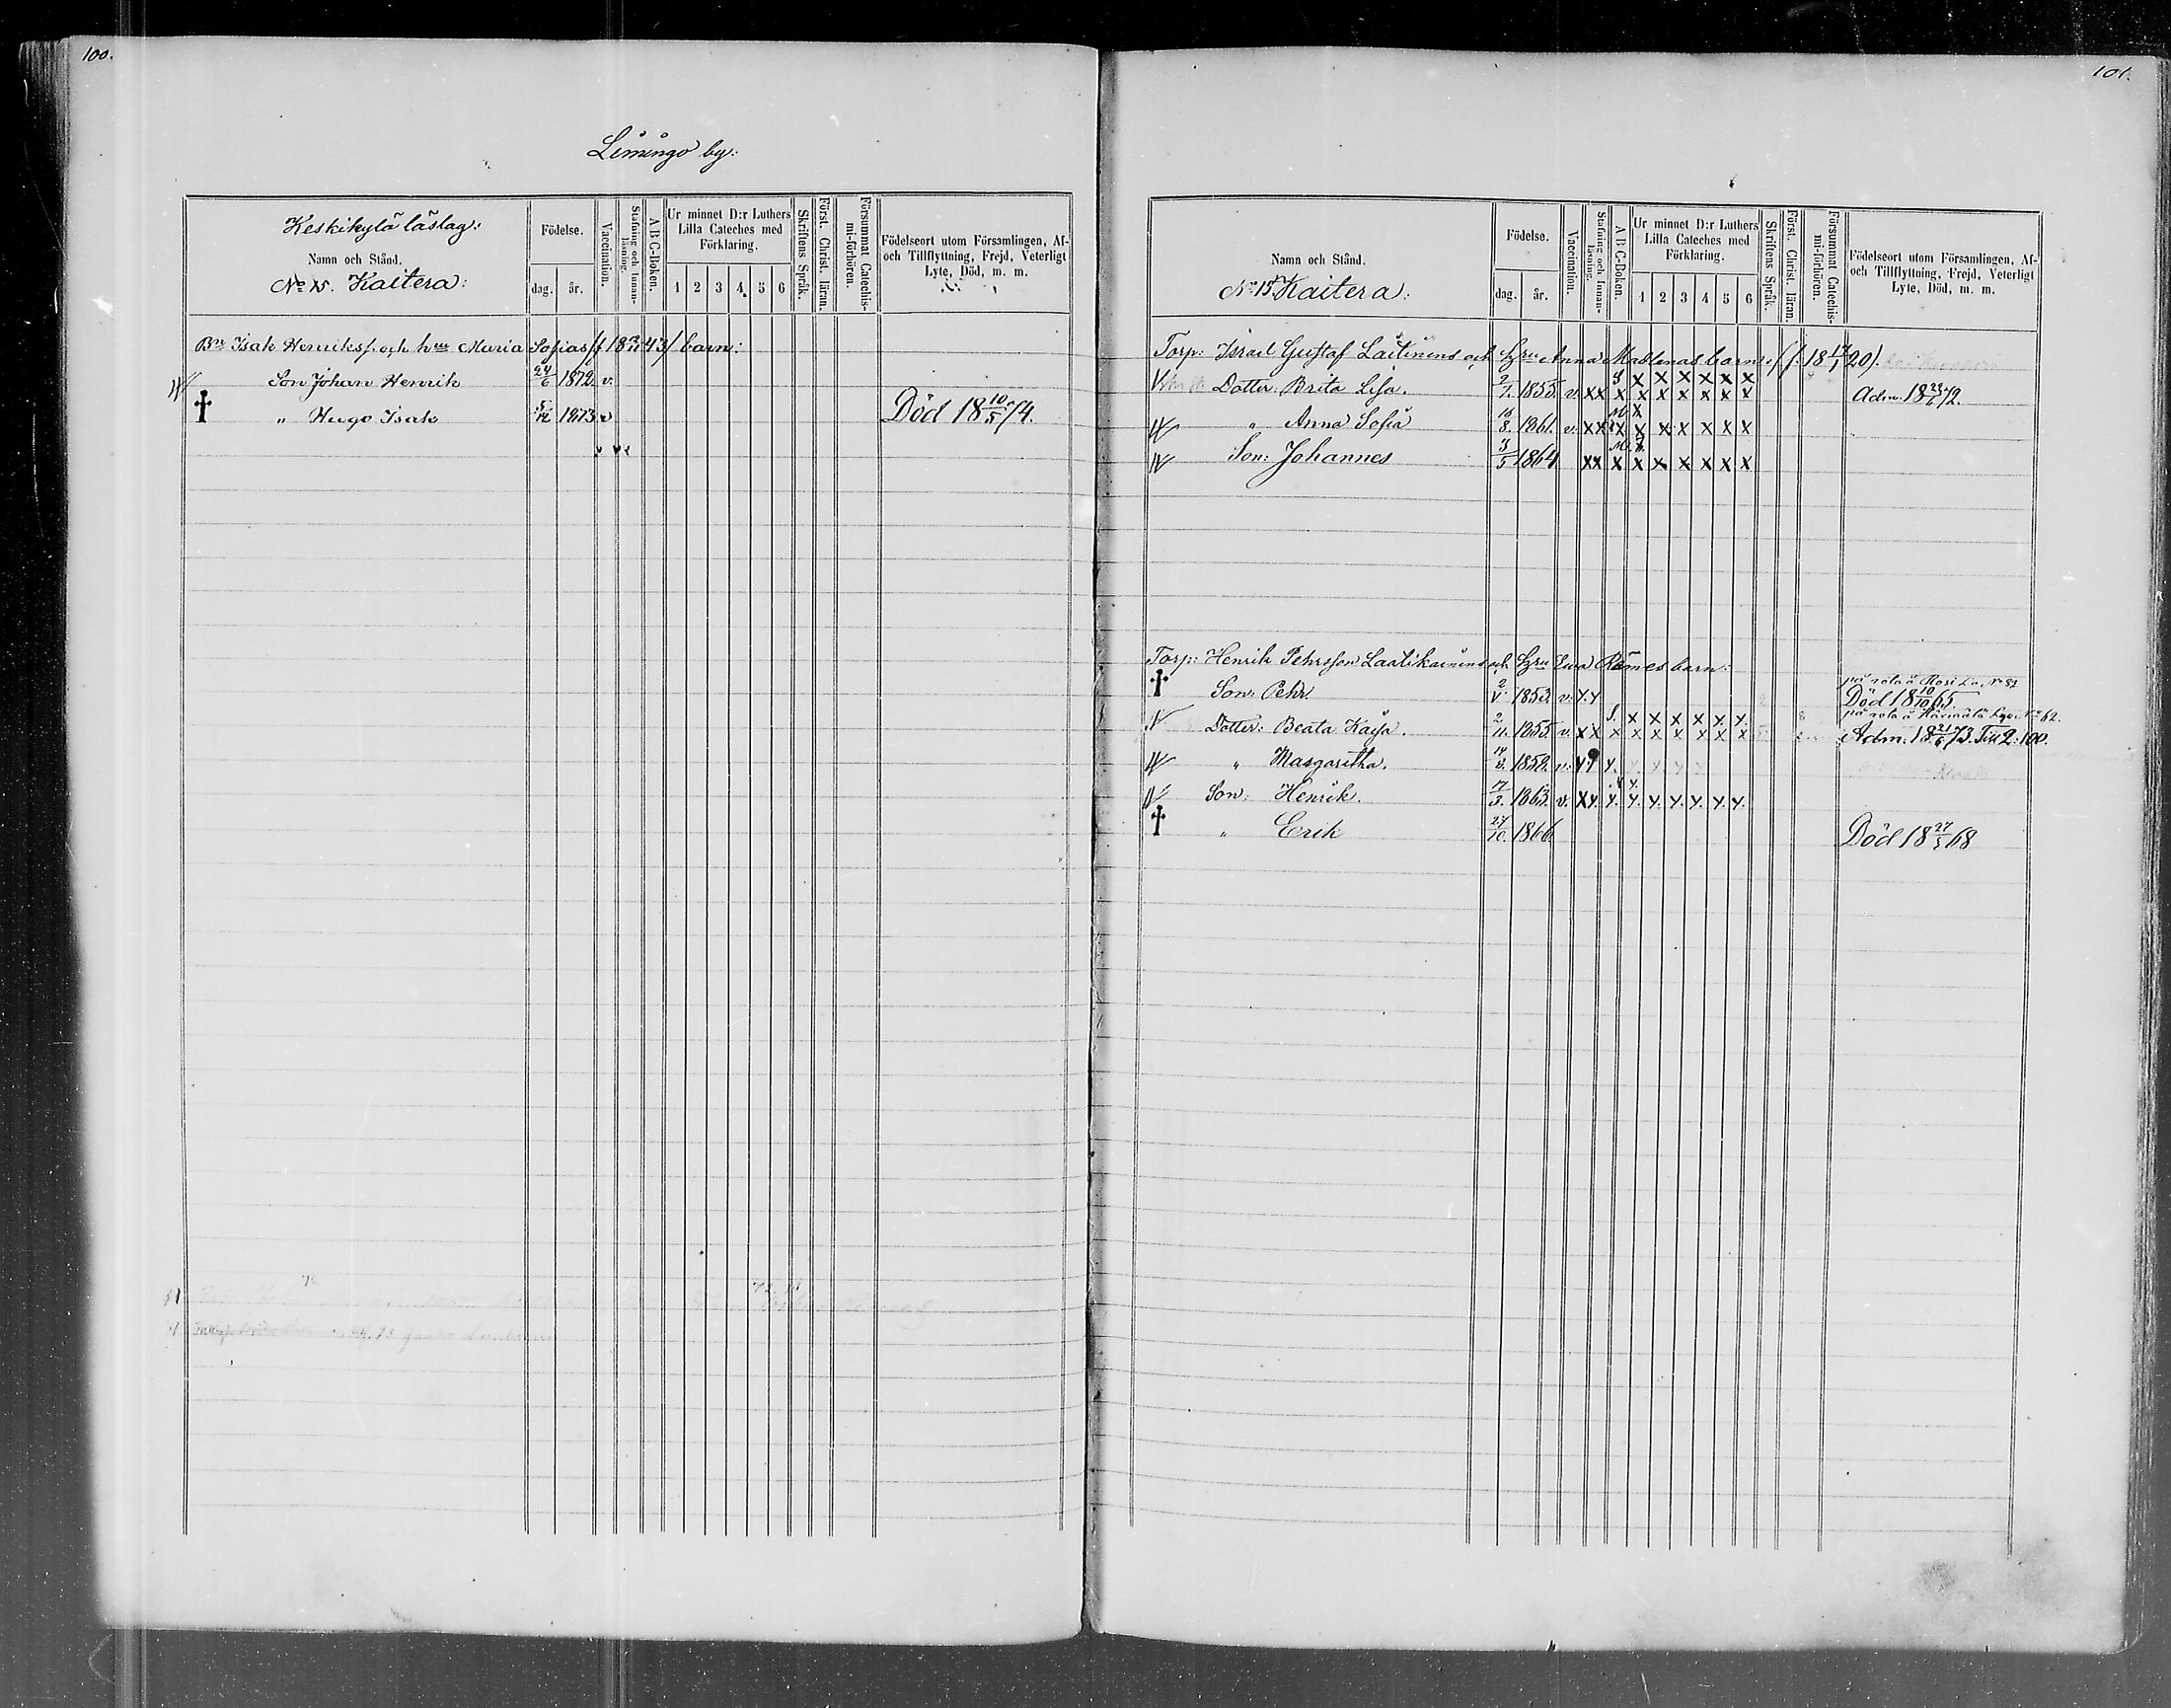 100.
Limingo by:
Keskikylä läslag:
Namn och Stånd.
No 15. Kaitera:
Födelse.
dag. år.
Vaccination.
Stafning och Innan-läsning.
A B C-Boken.
Ur minnet D:r Luthers
Lilla Cateches med
Förklaring.
1 2 3 4 5 6
Skriftens Språk.
Först. Christ. läran.
Försummat Catechis-mi-förhören.
Födelseort utom Församlingen, Af-
och Tillflyttning, Frejd, Veterligt
Lyte, Död, m. m.
Bn Isak Henrikss. och hu Maria Sofias (f 18 43) barn:
Son Johan Henrik 24/6 1872. v.
† " Hugo Isak 1873. v Död 18 10/5 74.
101.
Namn och Stånd.
No 15 Kaitera:
Födelse.
dag. år.
Vaccination.
Stafning och Innan-läsning.
A B C-Boken.
Ur minnet D:r Luthers
Lilla Cateches med
Förklaring.
1 2 3 4 5 6
Skriftens Språk.
Först. Christ. läran.
Försummat Catechis-mi-förhören.
Födelseort utom Församlingen, Af-
och Tillflyttning, Frejd, Veterligt
Lyte, Död, m. m.
Torp: Israel Gustaf Laitinens och Hru Anna Madlenas barn: (f. 18 17/1 20).
Dotter: Brita Lisa. 2/7. 1855. v. x x x x x x x x x Adm. 18 23/6 72.
" Anna Sofia 8. 1861. v. x x x x x x x x x
Son: Johannes 3/5 1864 x x x x x x x x x
Torp: Henrik Pehrsson Laatikainens och Hru Ewa Rämes barn:
på rota å No 82
† Son: Pehr. 1853. v. Död 18 10/10 65.
på rota å Härmälä No 62.
Dotter: Beata Kaisa. 2/11. 1855. v. x x x x x x x x x Adm. 18 21/6 73. Till 2:100.
" Margaretha. 1858. v.
Son: Henrik. 1863. v.
† " Erik 27/10. 1866. Död 18 27/5 68